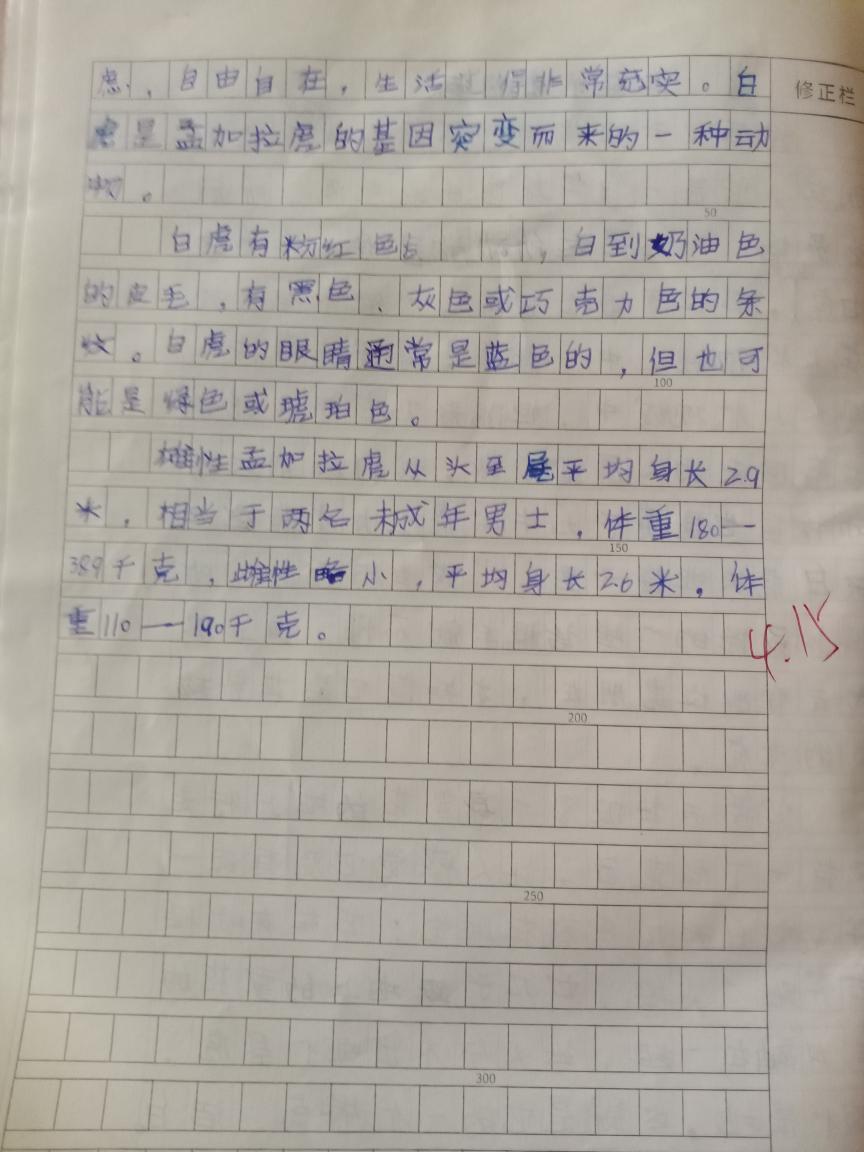 虑，自由自在，生活过得非常充实。白
虎是孟加拉虎的基因突变而来的一种动
物。
50
白虎有粉红色，白到奶油色
的皮毛，有黑色、灰色或巧克力色的条
纹。白虎的眼睛通常是蓝色的，但也可
100
能是绿色或琥珀色。
雄性孟加拉虎从头至尾平均身长2.9
米，相当于两名未成年男士，体重180—
150
389千克，雌性略小，平均身长2.6米，体
重110—190千克。
200
250
300
修正栏
4.15